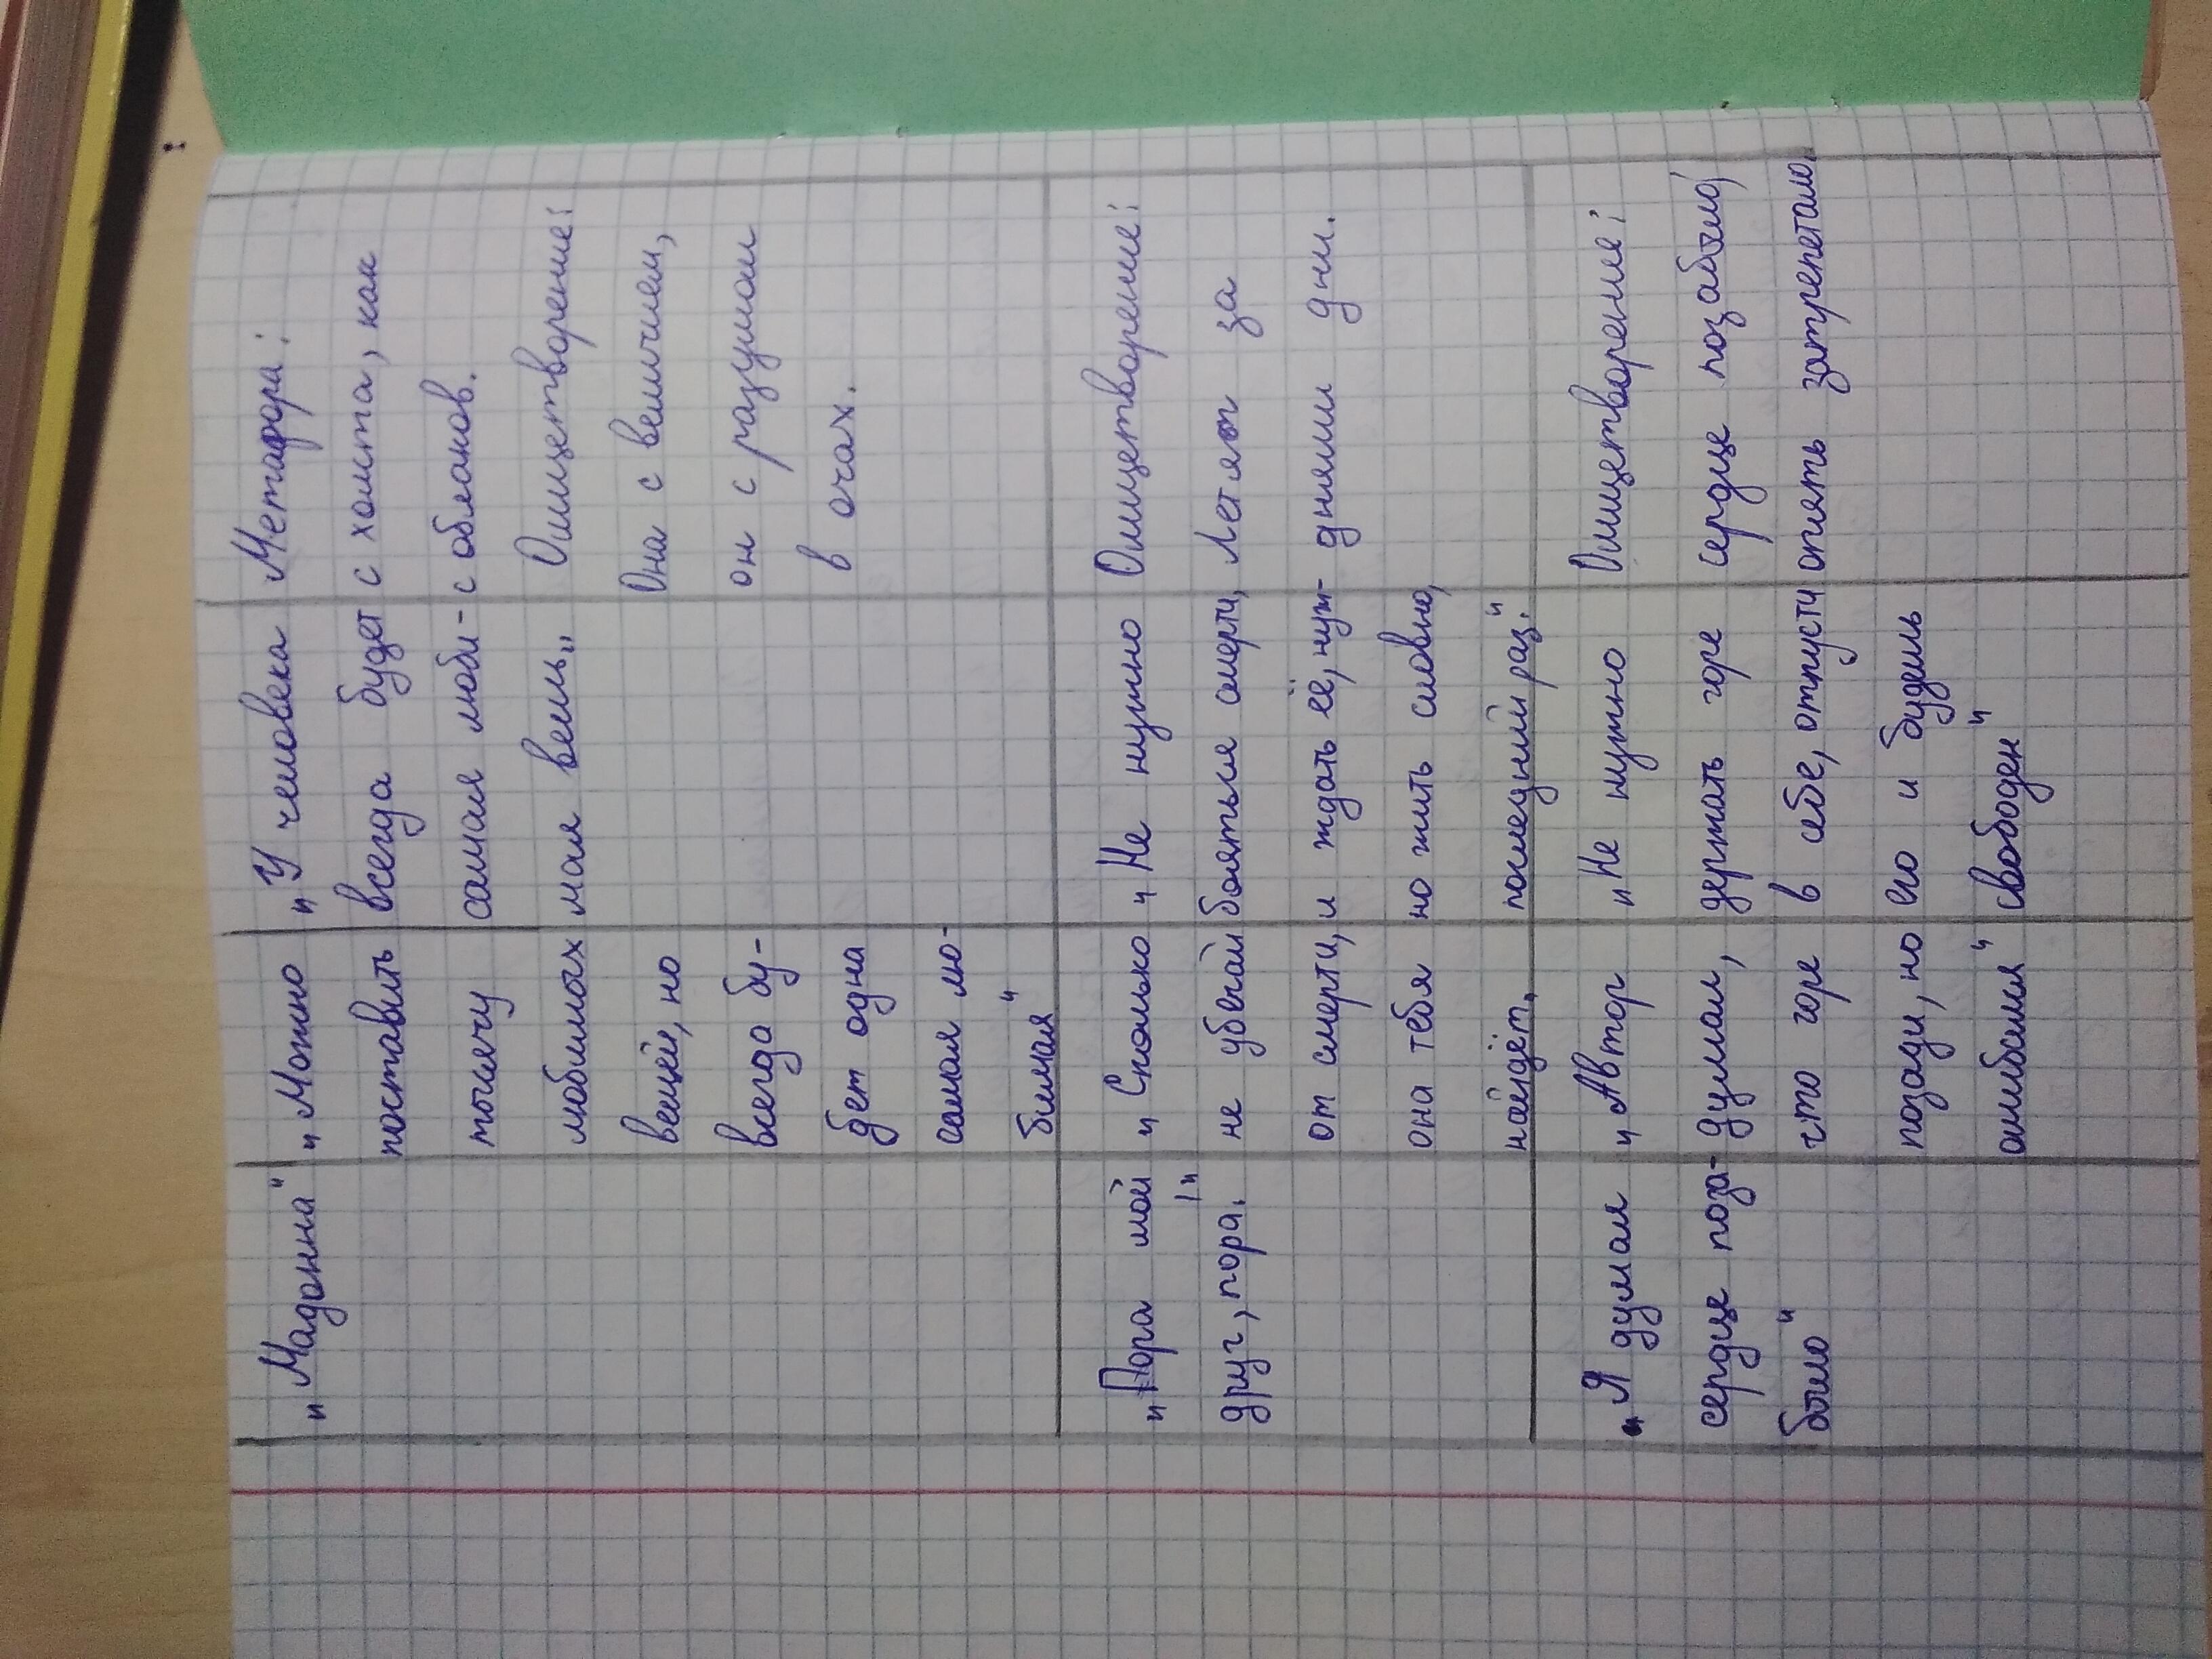 „Мадонна"
„Можно
поставить
тысячу
любимых
вещей, но
всегда бу-
дет одна
самая лю-
бимая"
„У человека
всегда будет
самая люби-
мая вещь„
Метафора:
с холста, как
с облаков.
Олицетворение:
Она с величием,
он с разумом
в очах.
„Пора мой
друг, пора!"
„Сколько
не убегай
от смерти,
она тебя
найдёт„
„Не нужно
бояться смерти,
и ждать её, нуж-
но жить словно,
последний раз."
Олицетворение:
Летят за
днями дни.
„Я думал
сердце поза-
было"
„Автор
думал,
что горе
позади, но
ошибся"
„Не нужно
держать горе
в себе, отпусти
его и будешь
свободен"
Олицетворение:
сердце позабыло,
опять затрепетало.